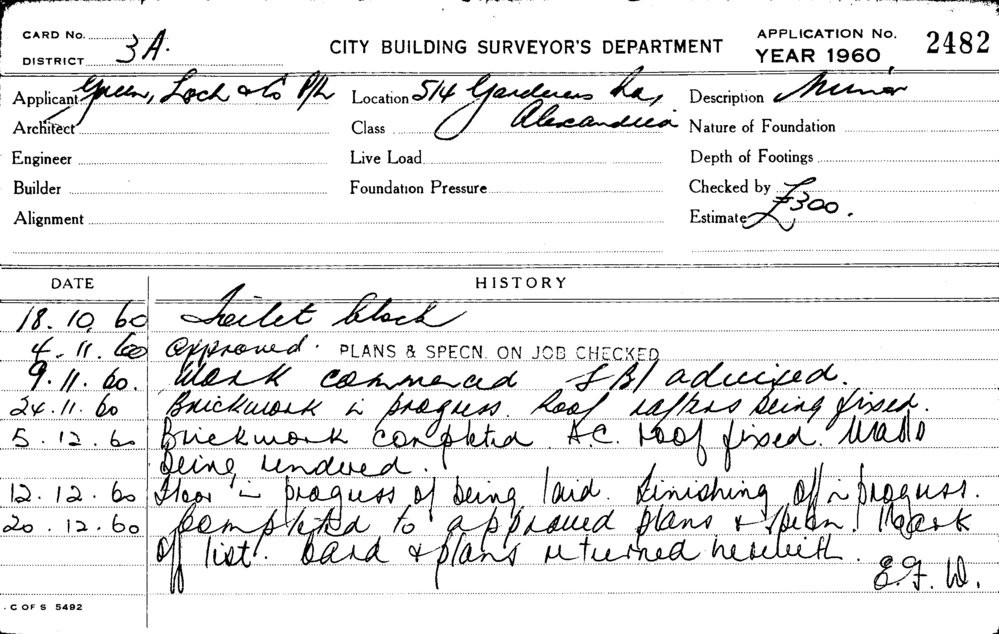 CARD No. 3A.
DISTRICT
CITY BUILDING SURVEYOR'S DEPARTMENT
APPLICATION No. 2482
YEAR 1960
Applicant Green, Loch & Co P/L Location 514 Gardeners Rd, Description Minor
Architect Class Alexandria Nature of Foundation
Engineer Live Load Depth of Footings
Builder Foundation Pressure Checked by
Alignment Estimate £300.
DATE HISTORY
18.10.60 Toilet block
4.11.60 approved. PLANS & SPECN. ON JOB CHECKED
9.11.60. Work commenced SBI advised.
24.11.60 Brickwork in progress. Roof rafters being fixed.
5.12.60 Brickwork completed A.C. roof fixed. Walls
being rendered.
12.12.60 Floor in progress of being laid. Finishing off in progress.
20.12.60 Completed to approved plans & specn. Mark
off list. Card & plans returned herewith.
E.F.W.
C OF S 5492